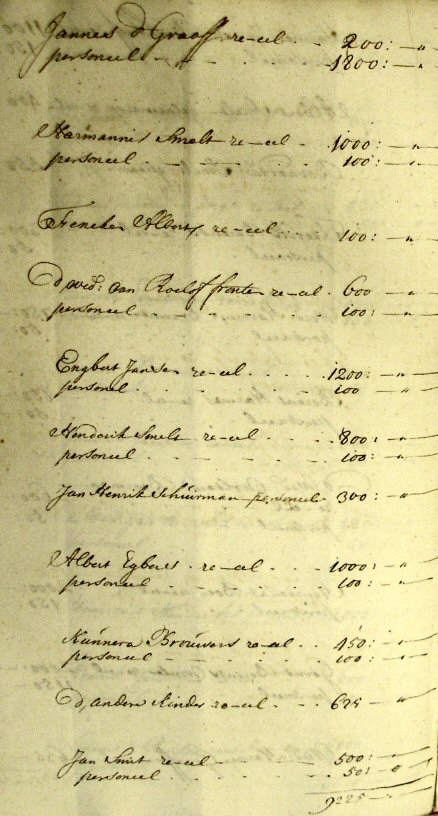 Jannes d Graaf re-eel . . 200: —„
personeel — „ — . . 1800: —„
Harmannis Smelt re-eel . 1000: —„
personeel . — . — . — . 100: —„
Albertz re-eel . . 100: —„
wed: van Roelof fronten re-eel . 600 —„
personeel . . . . . 100: —„
Engbert Jansen re-eel . . . . 1200: —„
personeel . . . . . . 100 —„
Hindorik Smelt re-eel . . . . 800: —„
personeel . . . . . . 100: —„
Jan Henrik Schuurman personeel . 300: —„
Albert Egberts . re-eel . . . 1000: —„
personeel . . . . . . 100: —„
Kunnera Brouwers re-eel . . 450: —„
personeel . . . . . . 100: —„
D, andere Kinder re-eel . . 625 —„
Jan Smit re-eel . . . . 500: —„
personeel . . . . . 50: —„
9225 —„